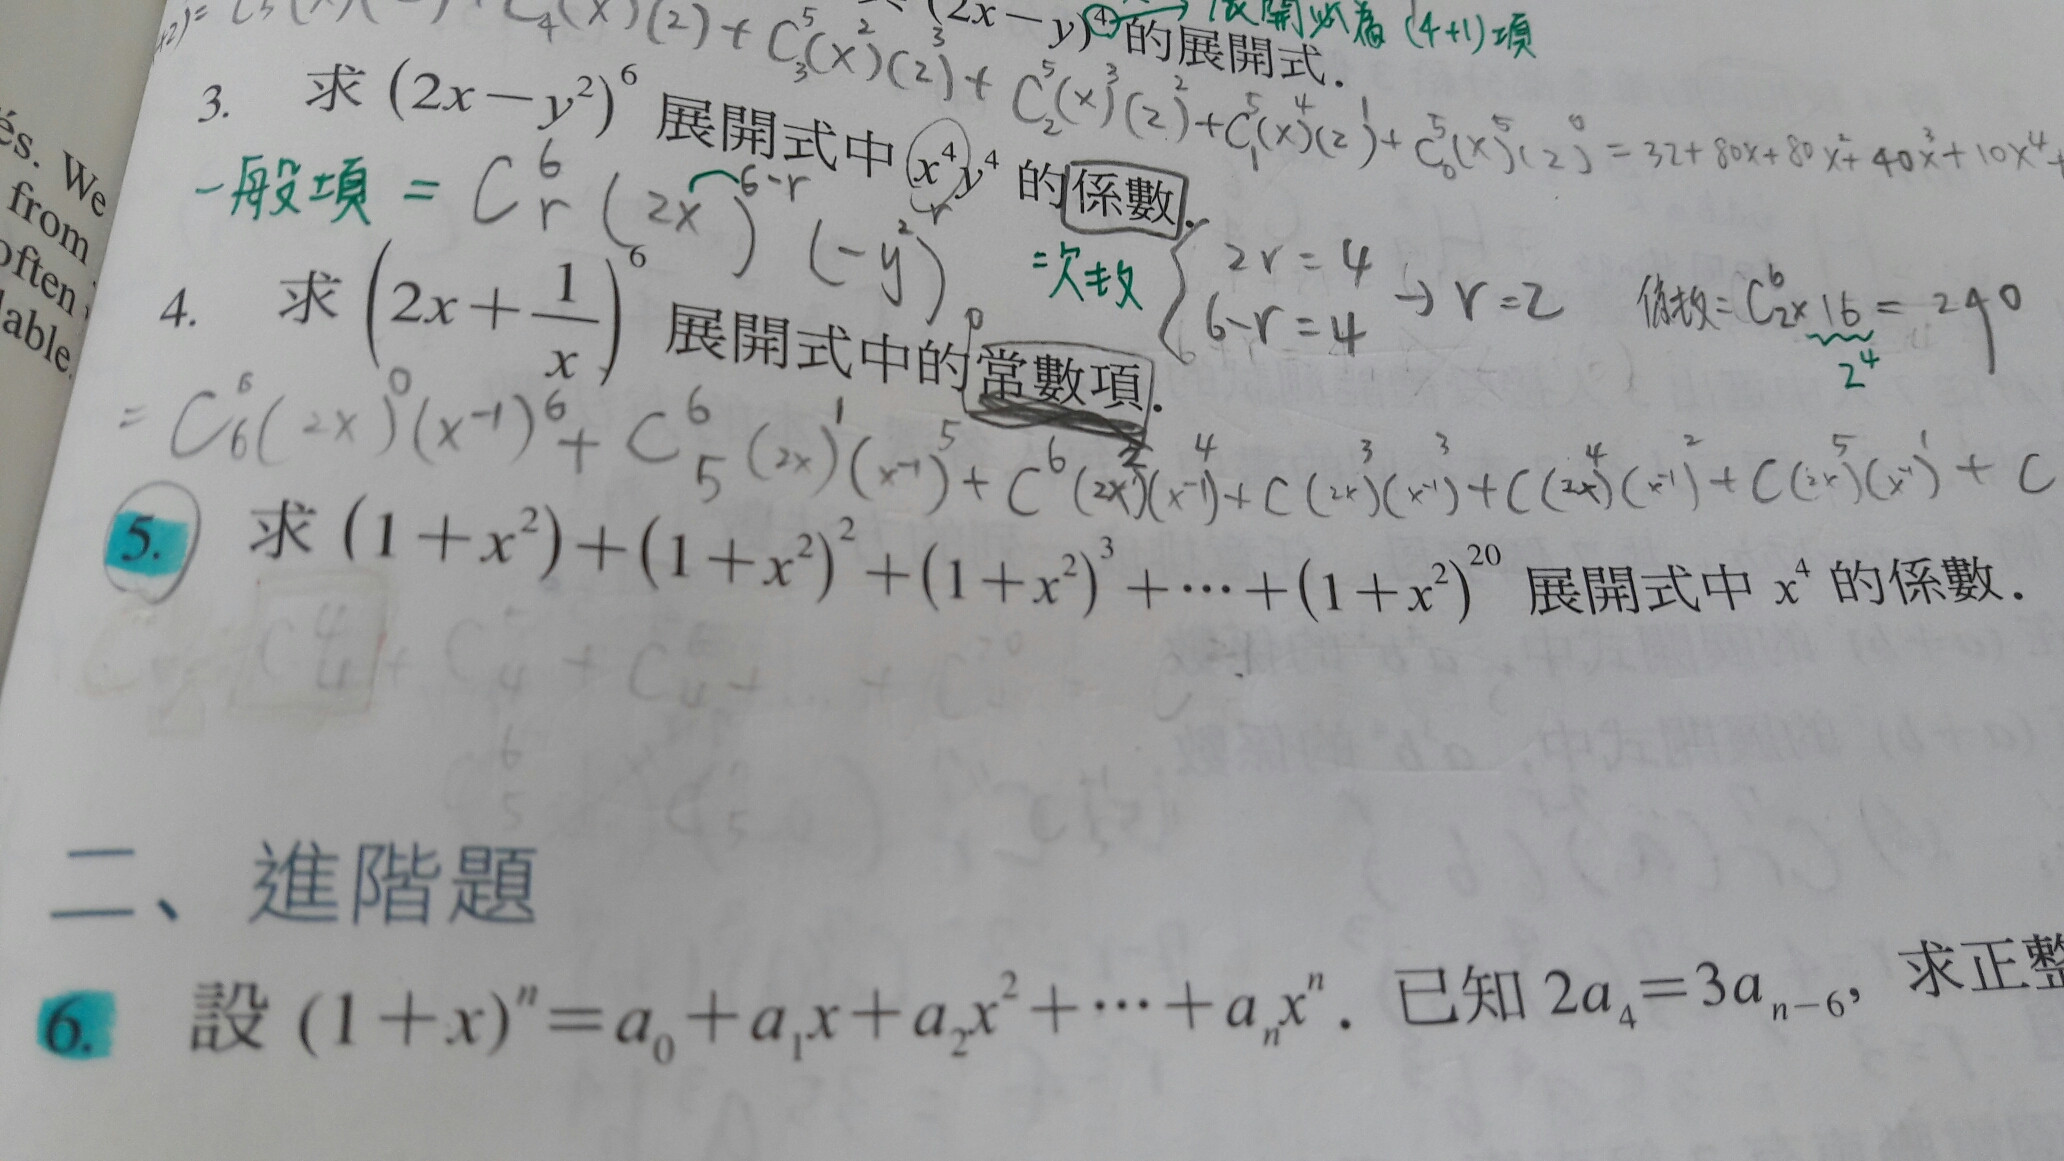 (2x－y)⁴的展開式． 展開必為 (4+1)項
C₃⁵(x)²(2)³+C₂⁵(x)³(2)²+C₁⁵(x)⁴(2)¹+C₀⁵(x)⁵(2)⁰=32+80x+80x²+40x³+10x⁴+
3. 求 (2x－y²)⁶ 展開式中 x⁴y⁴ 的係數．
一般項 = C⁶ᵣ (2x)⁶⁻ʳ (-y²)ʳ =次數 { 2r=4 6-r=4 → r=2 係數=C⁶₂×16=240
2⁴
4. 求 (2x+1/x)⁶ 展開式中的常數項．
= C⁶₆(2x)⁰(x⁻¹)⁶+C⁶₅(2x)¹(x⁻¹)⁵+C⁶(2x)²(x⁻¹)⁴+C(2x)³(x⁻¹)³+C(2x)⁴(x⁻¹)²+C(2x)⁵(x⁻¹)¹+C
5. 求 (1+x²)+(1+x²)²+(1+x²)³+⋯+(1+x²)²⁰ 展開式中 x⁴ 的係數．
二、進階題
6. 設 (1+x)ⁿ=a₀+a₁x+a₂x²+⋯+aₙxⁿ． 已知 2a₄=3aₙ₋₆，求正整
és. We
from
often
lable.